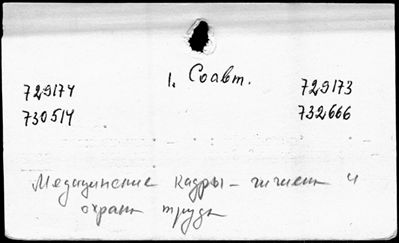 1. Соавт.
729174 729173
730514 732666
Медицинские кадры – гигиена и
охрана труда